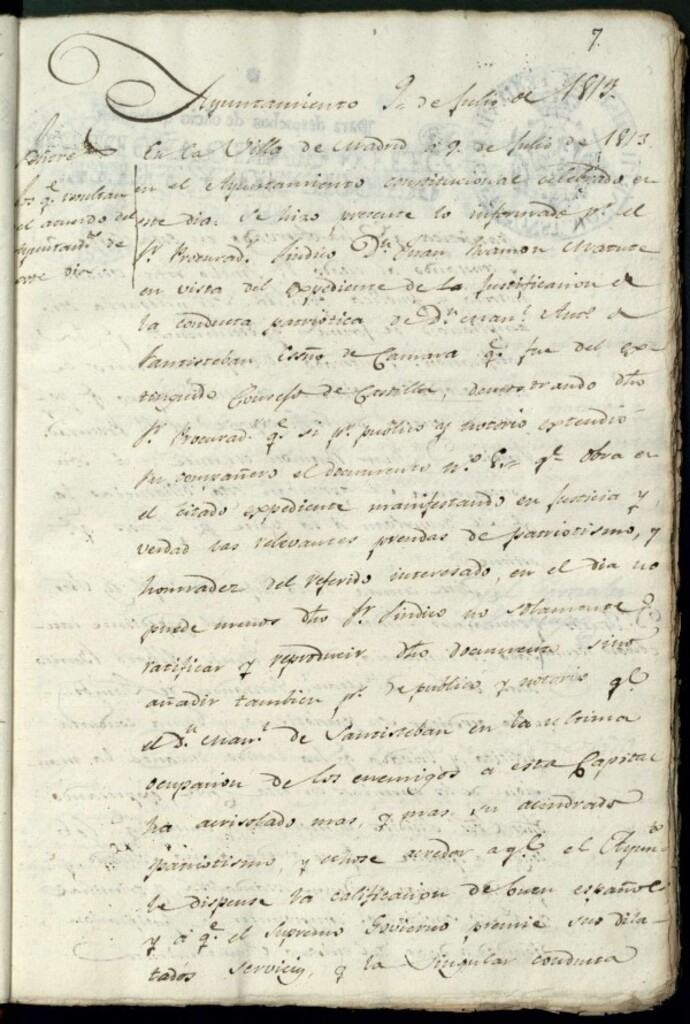 7.
Ayuntamiento 9 de Julio de 1813.
los q.e resultan
el acuerdo del
Ayuntam.to de
este dia
En la Villa de Madrid á 9. de Julio de 1813.
en el Ayuntamiento constitucional celebrado en
este dia. Se hizo presente lo informado p.r el
S.r Procurad.r Sindico D.n Juan Ramon Matute
en vista del expediente de la Justificacion de
la conducta patriótica de D.n Man.l Ant.o de
Santisteban Essno de Camara q.e fue del ex-
tinguido Consejo de Castilla, demostrando dho
S.r Procurad.r q.e si p.r publico y notorio extendió
su compañero el documento n.o q.e obra en
el citado expediente manifestando en Justicia y
verdad las relevantes prendas de patriotismo, y
honradez del referido interesado, en el dia no
puede menos dho S.r Sindico no solamente
ratificar y reproducir dho documento sino
añadir tambien p.r de publico y notorio q.e
el D.n Man.l de Santisteban en la ultima
ocupacion de los enemigos a esta Capital
ha acrisolado mas, y mas su acendrado
patriotismo, y echose acredor a q.e el Ayun.to
le dispense la calificacion de buen español
y á q.e el Supremo Govierno premie sus dila-
tados servicios, y la singular conducta